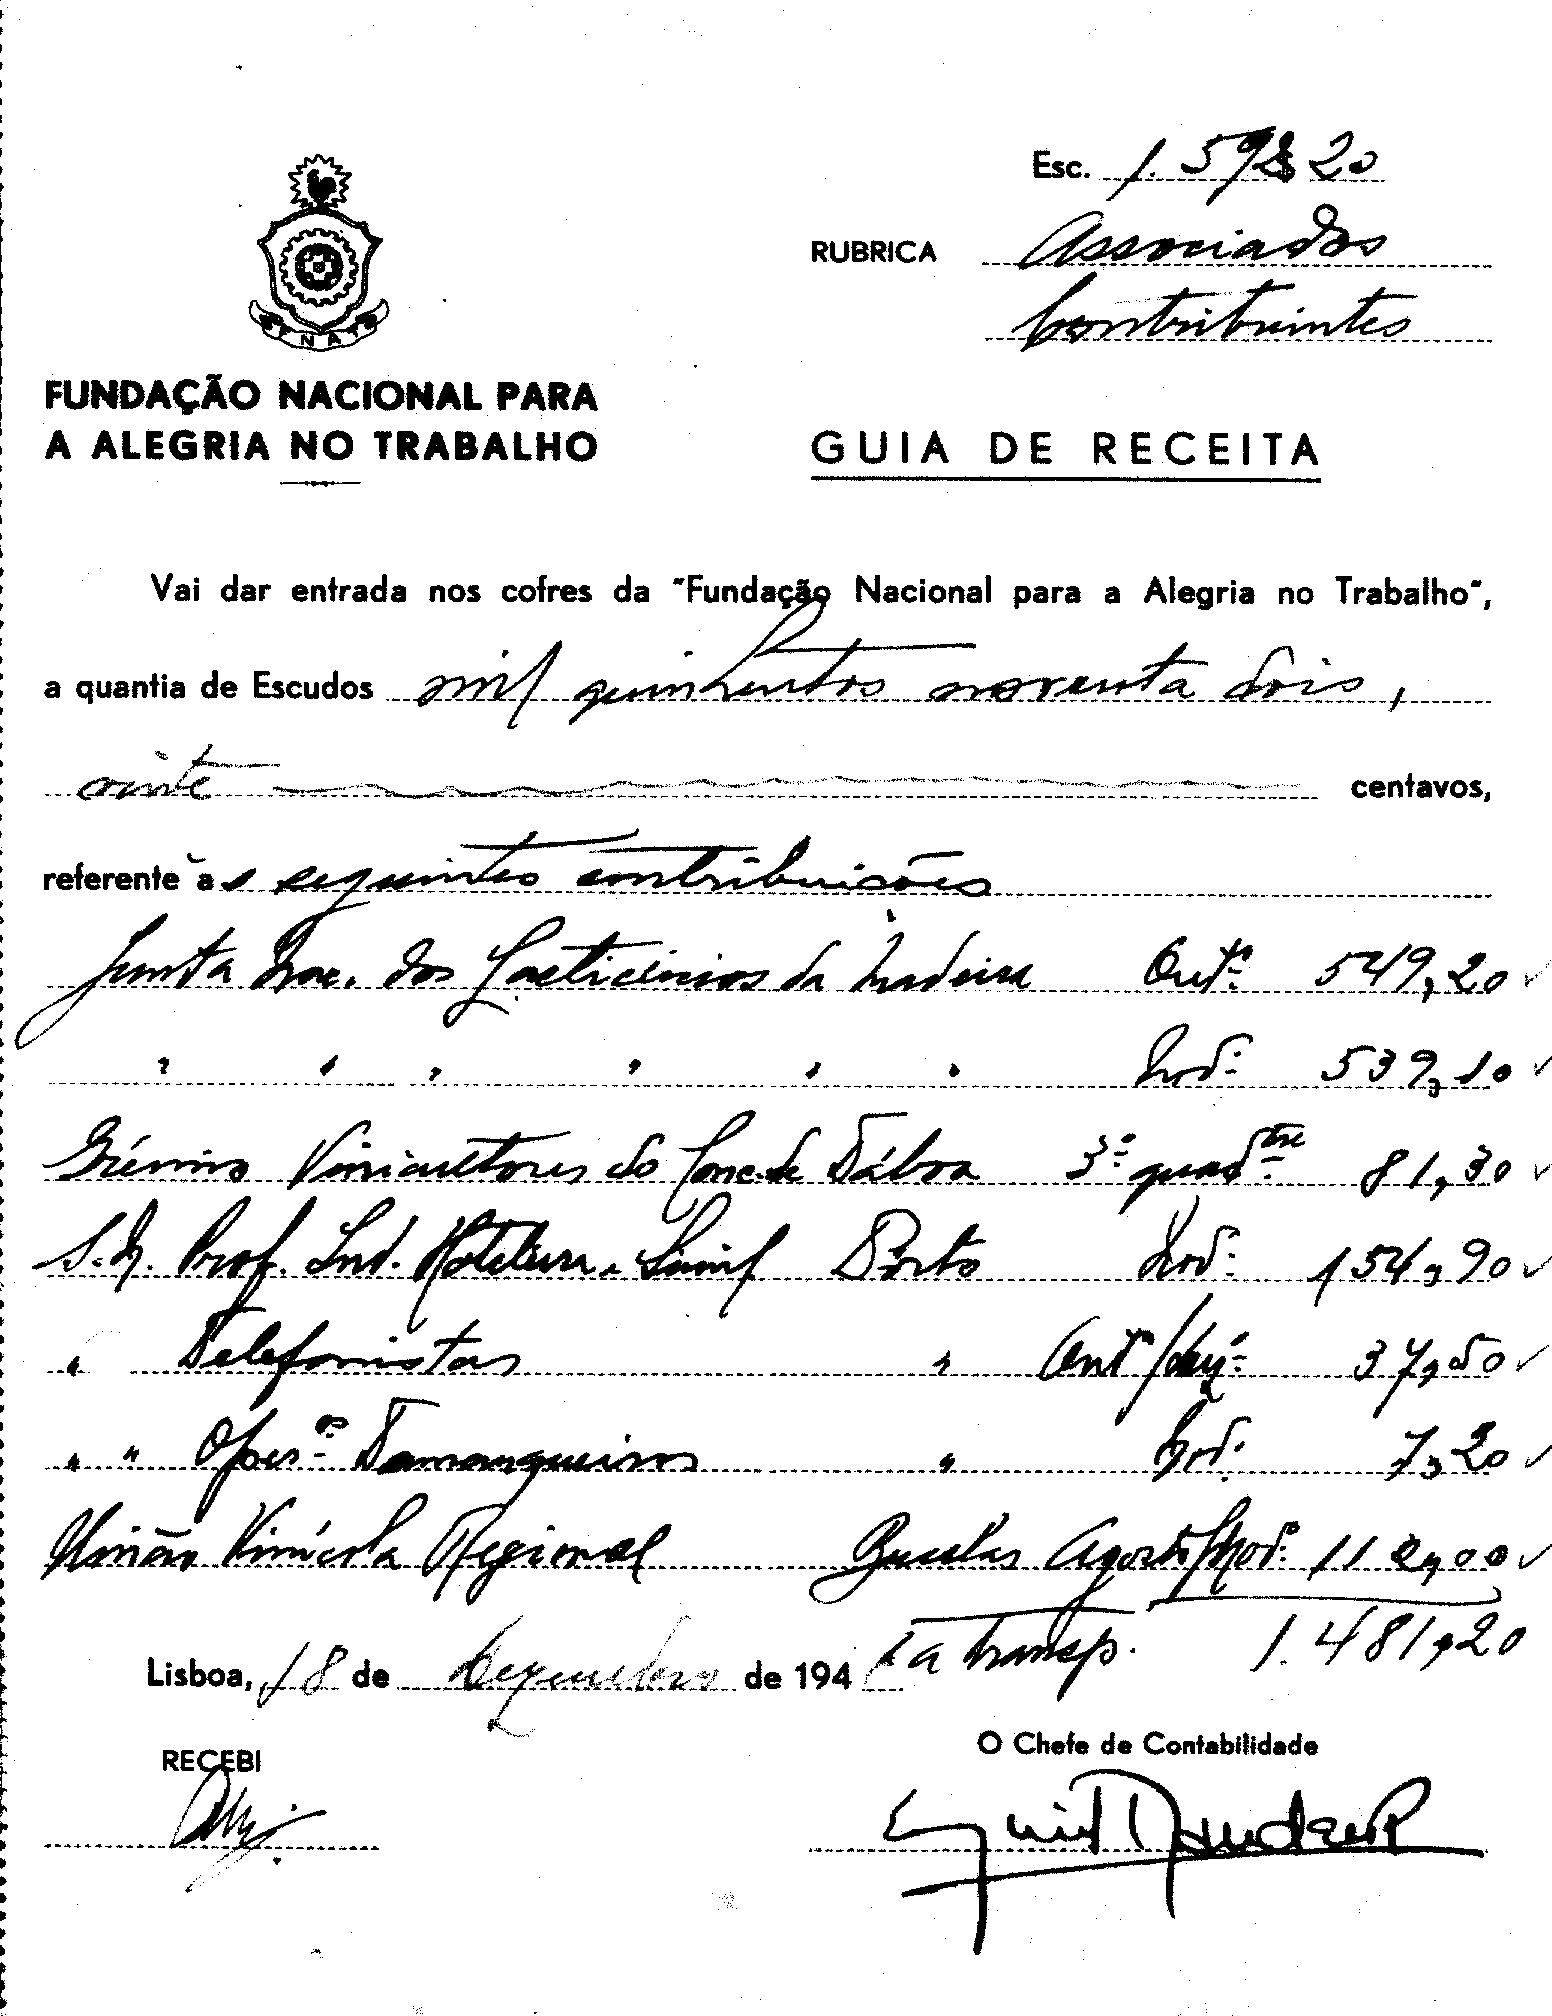 Esc. 1.592$20
RUBRICA Associados
Contribuintes
F N A T
FUNDAÇÃO NACIONAL PARA
A ALEGRIA NO TRABALHO
GUIA DE RECEITA
Vai dar entrada nos cofres da "Fundação Nacional para a Alegria no Trabalho",
a quantia de Escudos mil quinhentos noventa dois,
vinte centavos,
referente às seguintes contribuisões
Junta Nac. dos Lacticinios da Madeira Outº 549,20
" " " " " " Novº 539,10
Grémio Vinicultores do Conc. de Táboa 3º quadtre 81,30
S. N. Prof. Ind. Hoteleira e Simil Porto Novº 154,90
" Telefonistas " Outº/dezº 37,50
" " Operºs Tamanqueiros " Novº 7,20
União Vinícola Regional Bucelas Agosto/Novº 112,00
a transp. 1.481,20
Lisboa, 18 de Dezembro de 194
RECEBI
O Chefe de Contabilidade